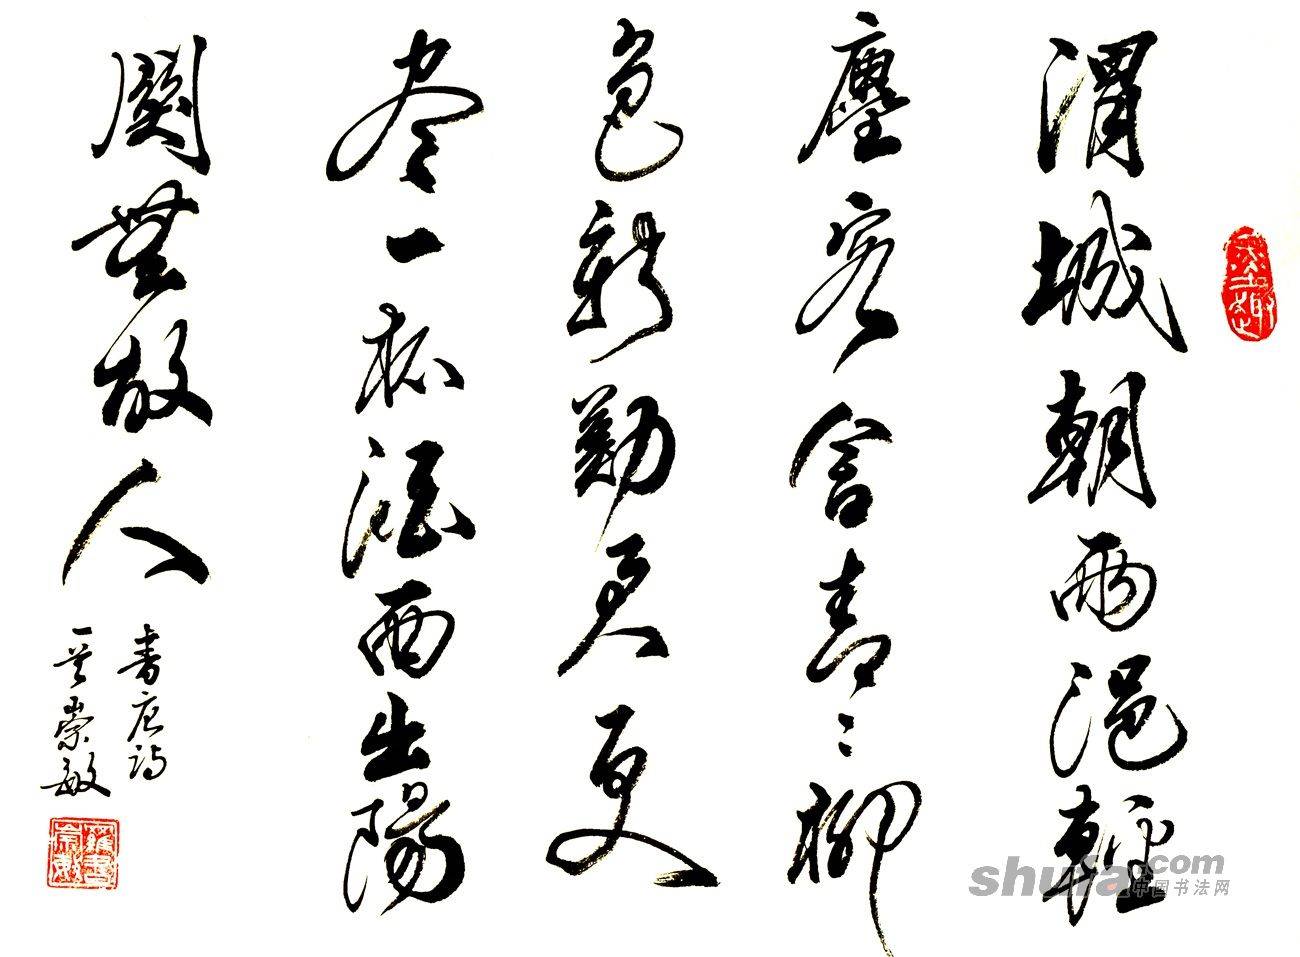 渭城朝雨浥輕
塵客舍青々柳
色新勸君更
尽一杯酒西出陽
關無故人
書唐诗
一首崇敏
shufa.com
中国书法网